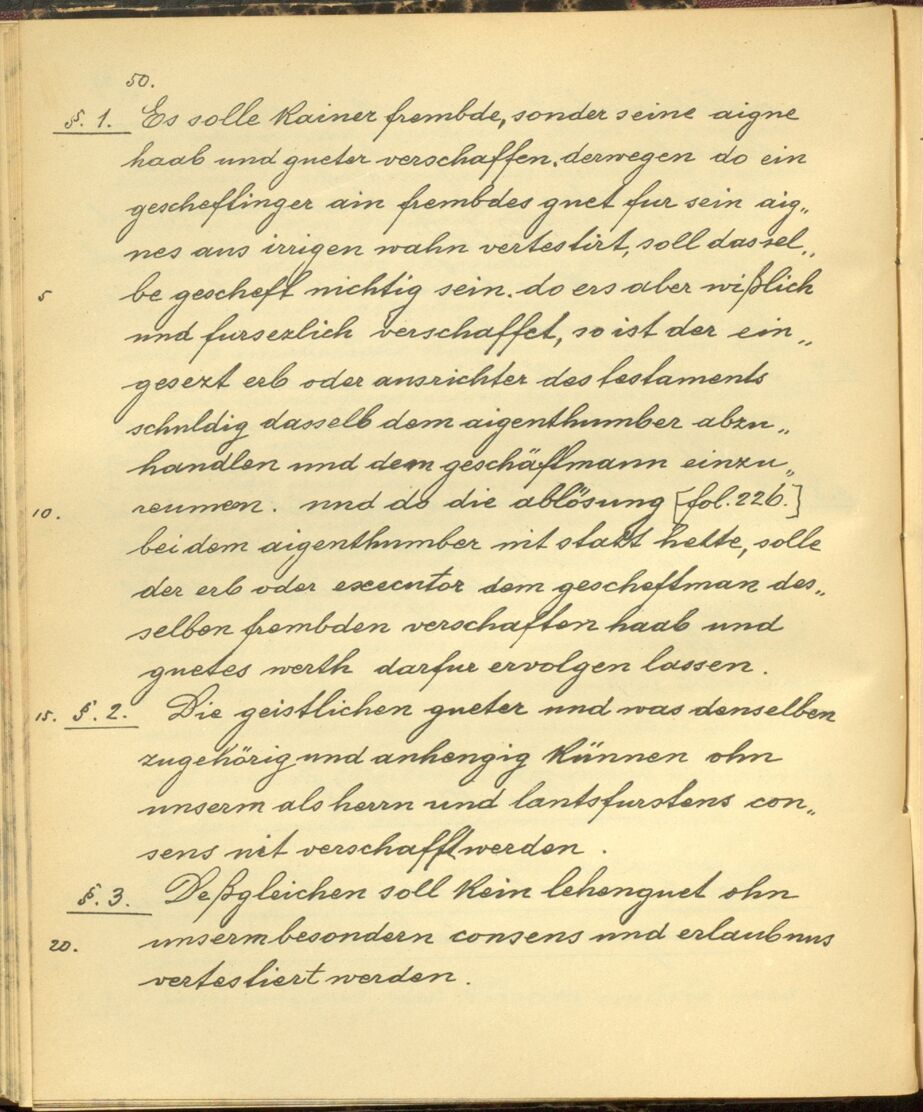 50.
§. 1. Es solle kainer frembde, sonder seine aigne
haab und gueter verschaffen. derwegen do ein
gescheftinger ain frembdes guet fur sein aig„
nes aus irrigen wahn vertestirt, soll dassel„
5 be gescheft nichtig sein. do ers aber wißlich
und fursezlich verschaffet, so ist der ein„
gesezt erb oder ausrichter des testaments
schuldig dasselb dem aigenthumber abzu„
handlen und dem geschäftmann einzu„
10. reumen. und do die ablösung [fol. 226.]
bei dem aigenthumber nit statt hette, solle
der erb oder executor dem gescheftman des„
selben frembden verschaften haab und
guetes werth darfur ervolgen lassen.
15. §. 2. Die geistlichen gueter und was denselben
zugehörig und anhengig künnen ohn
unserm als herrn und lantsfurstens con„
sens nit verschafft werden.
§. 3. Deßgleichen soll kein lehenguet ohn
20. unserm besondern consens und erlaubnus
vertestiert werden.